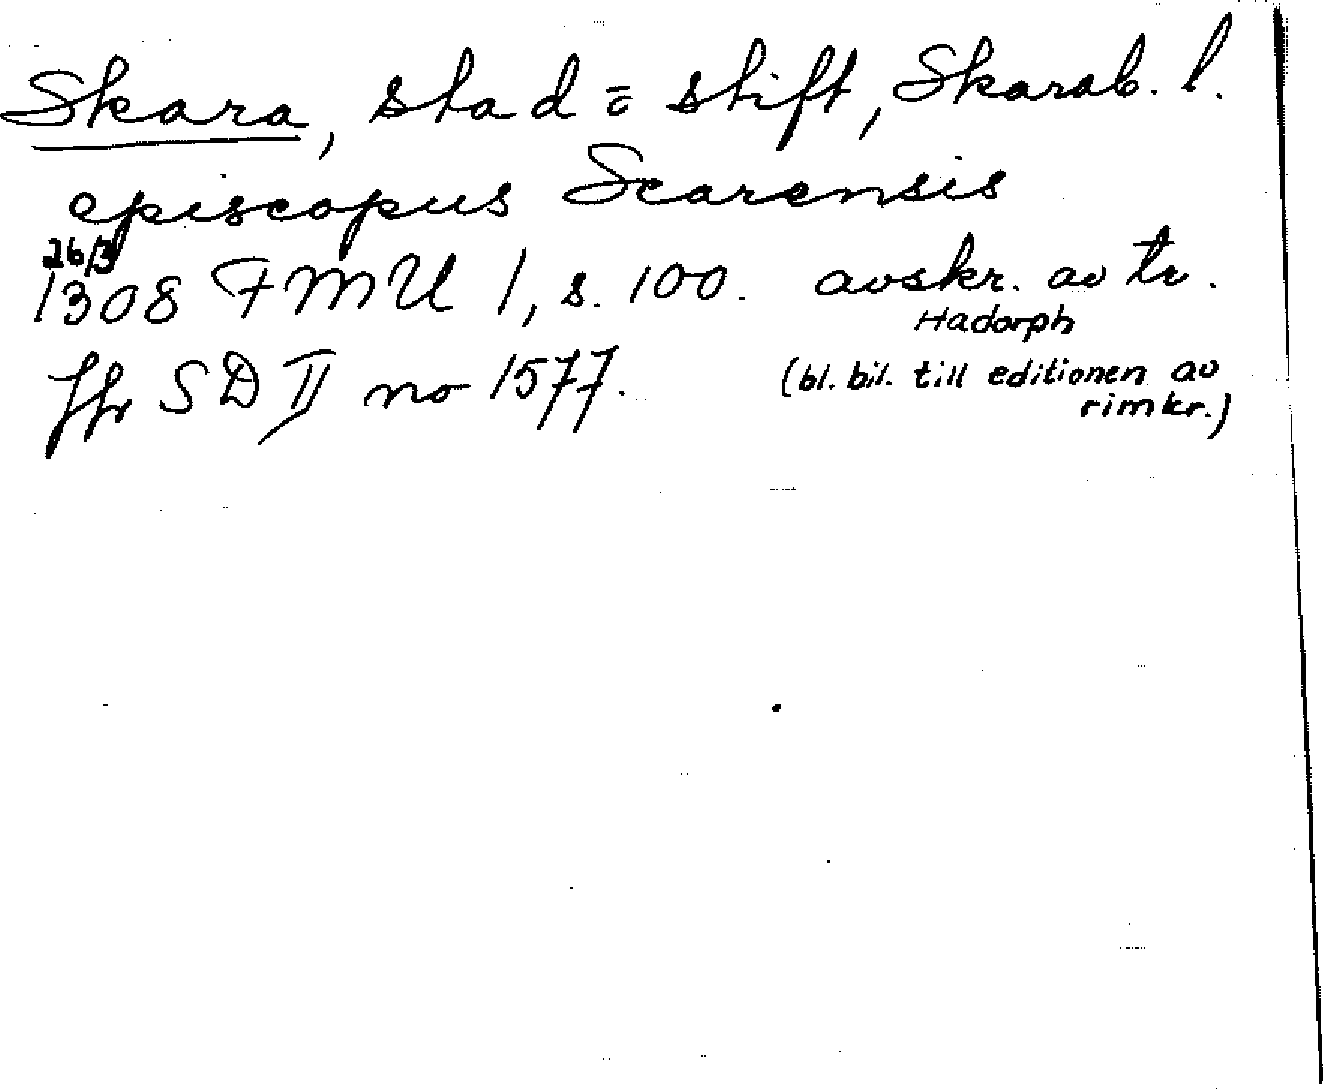 Skara, stad o stift, Skarab. l.
episcopus Scarensis
26/3
1308 FMU 1, s. 100. avskr. av tr.
Hadorph
Jfr SD II no 1577. (bl. bil. till editionen av
rimkr.)